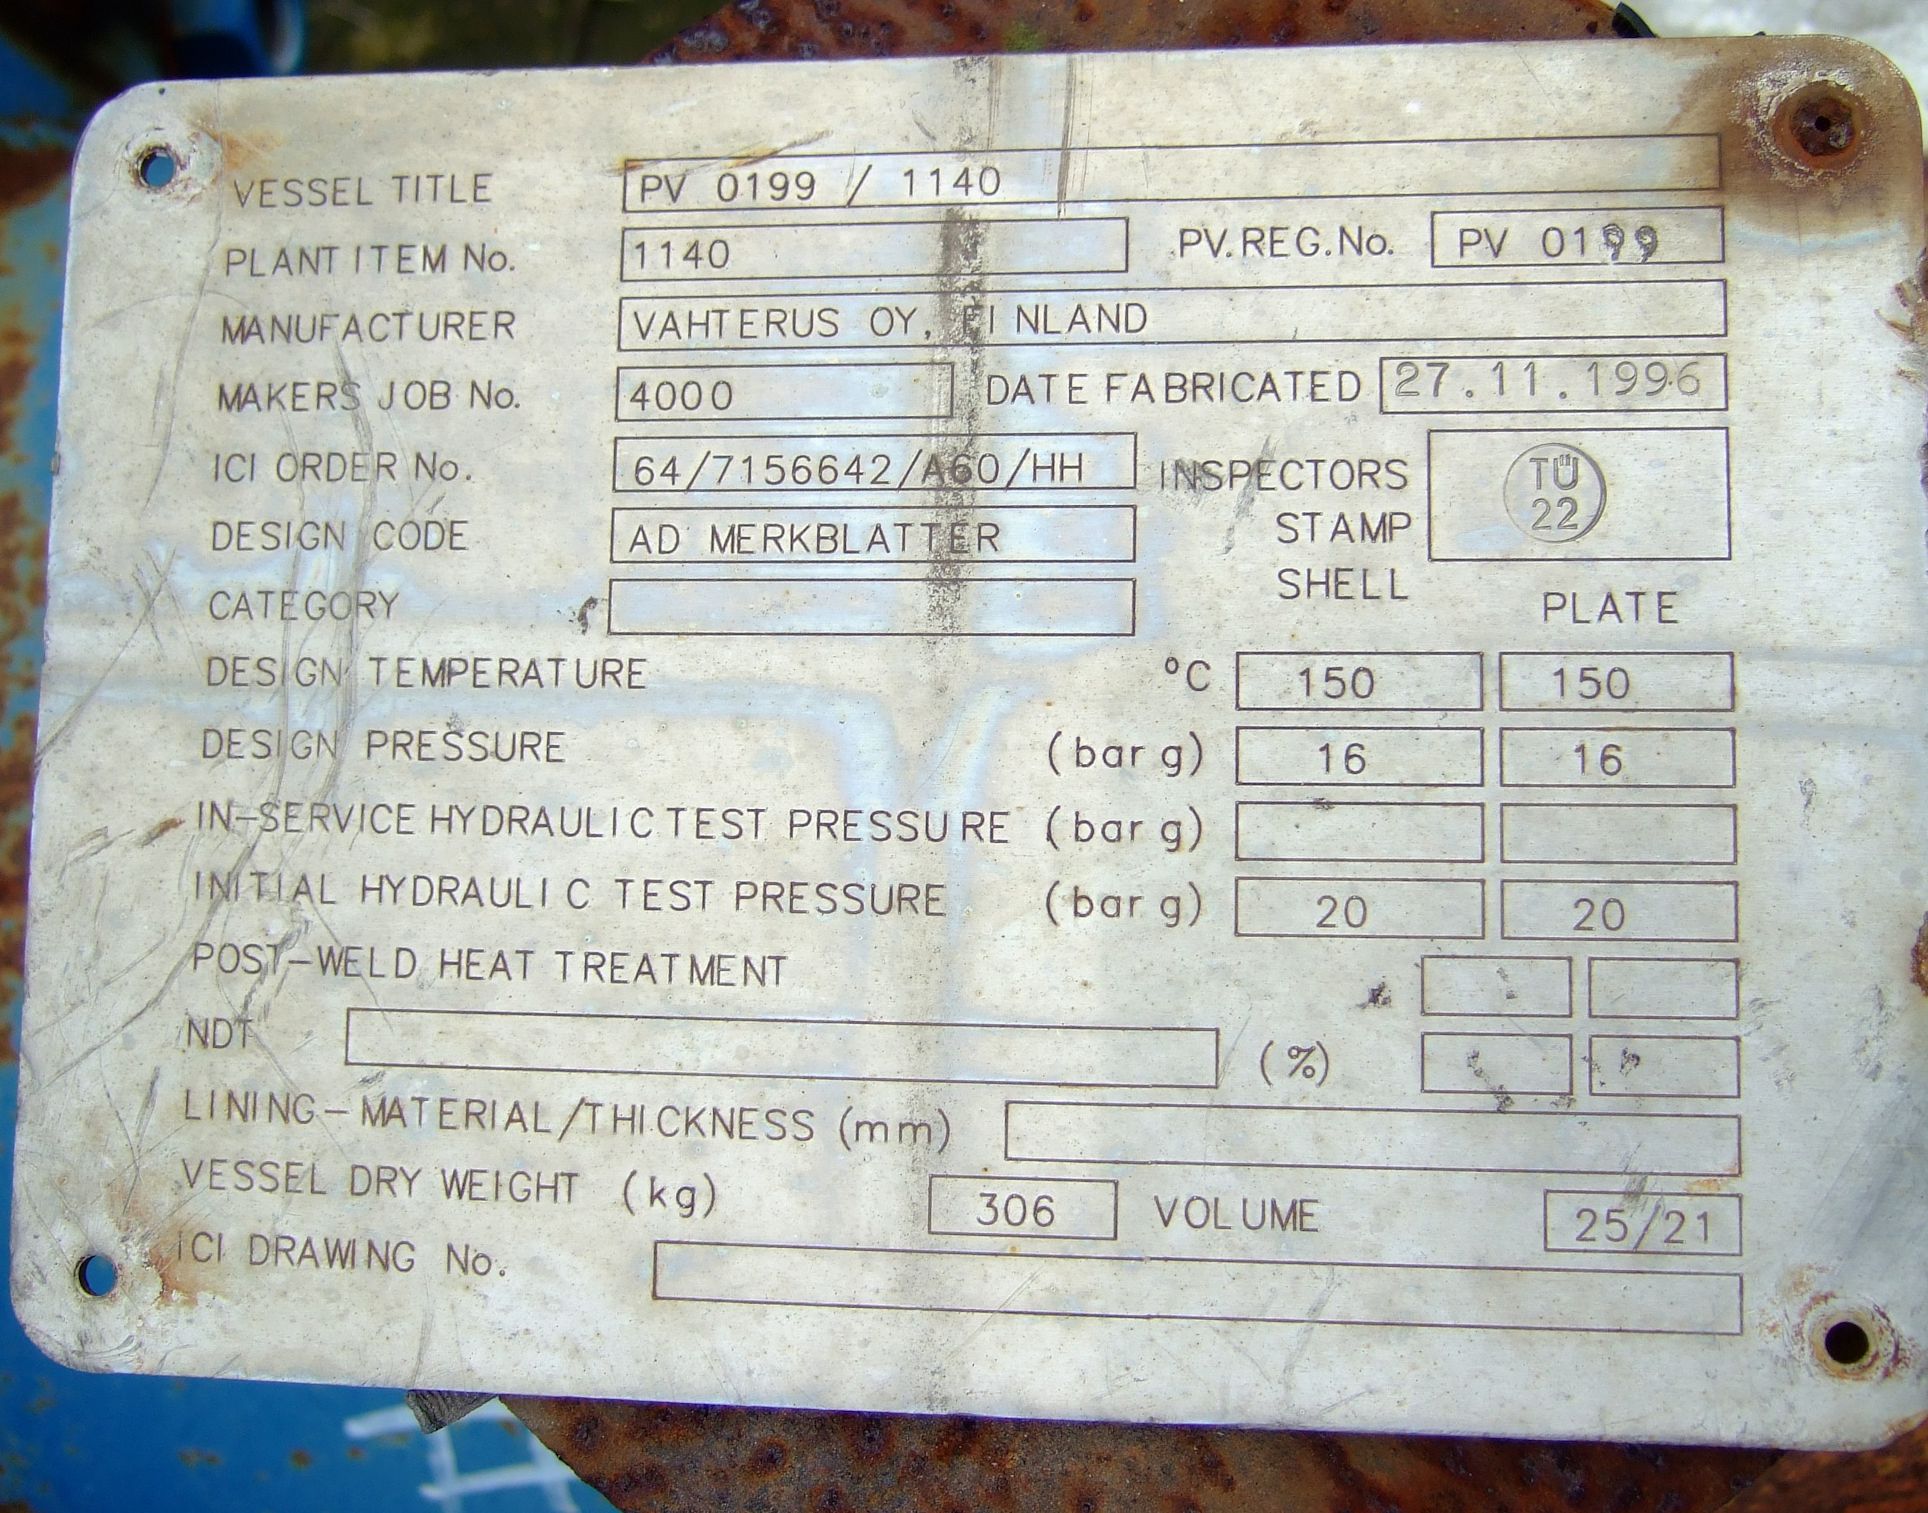 VESSEL TITLE PV 0199 / 1140
PLANT ITEM No. 1140 PV.REG.No. PV 0199
MANUFACTURER VAHTERUS OY, FINLAND
MAKERS JOB No. 4000 DATE FABRICATED 27.11.1996
ICI ORDER No. 64/7156642/A60/HH INSPECTORS
STAMP
TÜ
22
DESIGN CODE AD MERKBLATTER
CATEGORY
SHELL PLATE
DESIGN TEMPERATURE °C 150 150
DESIGN PRESSURE (bar g) 16 16
IN-SERVICE HYDRAULIC TEST PRESSURE (bar g)
INITIAL HYDRAULIC TEST PRESSURE (bar g) 20 20
POST-WELD HEAT TREATMENT
NDT (%)
LINING-MATERIAL/THICKNESS (mm)
VESSEL DRY WEIGHT (kg) 306 VOLUME 25/21
ICI DRAWING No.